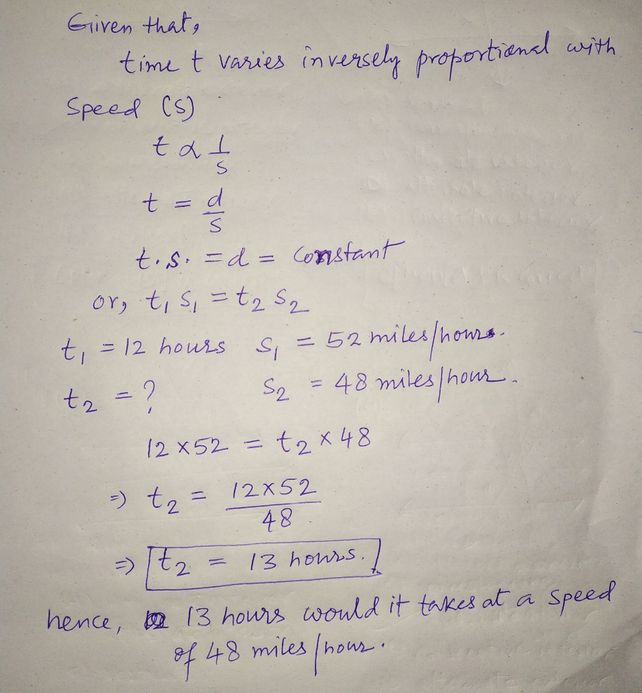 Given that,
time t varies inversely proportional with
Speed (S)
t α 1/s
t = d/s
t.s. = d = Constant
or, t₁ S₁ = t₂ S₂
t₁ = 12 hours S₁ = 52 miles/hour.
t₂ = ? S₂ = 48 miles/hour.
12 x 52 = t₂ x 48
=> t₂ = 12x52/48
=> t₂ = 13 hours.
hence, 13 hours would it takes at a speed
of 48 miles/hour.